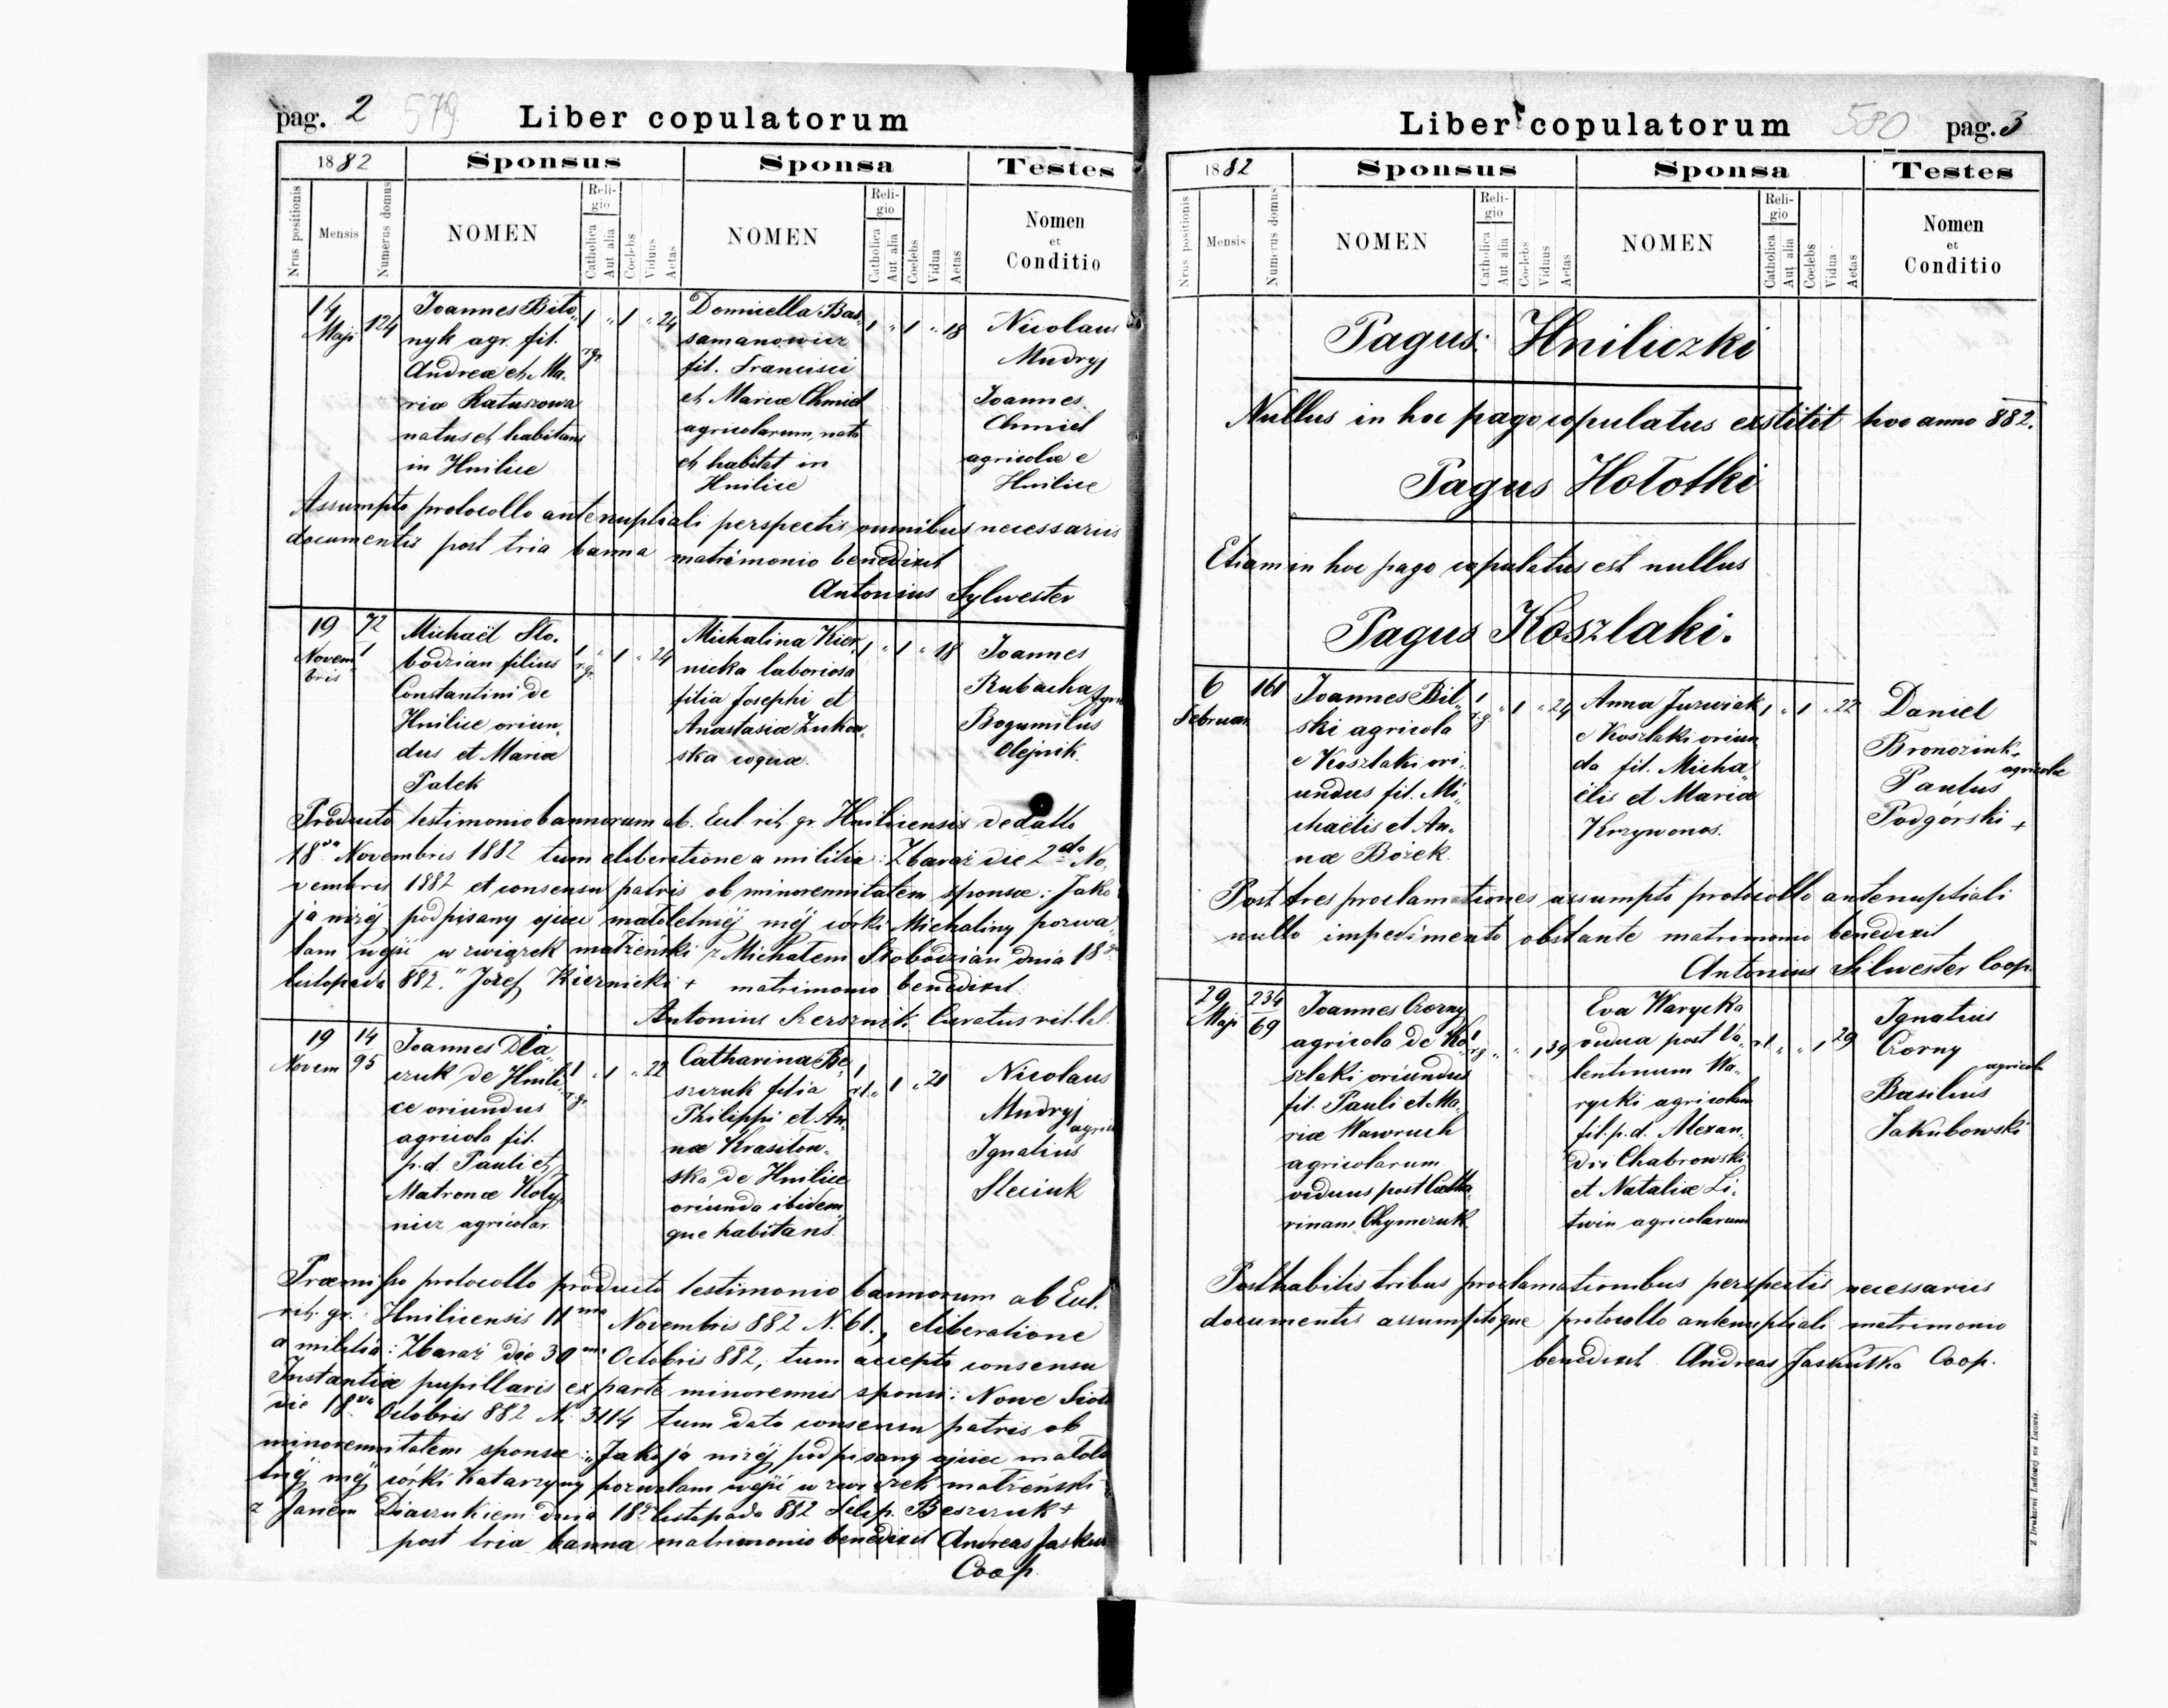 pag. 2 579 Liber copulatorum
1882 Sponsus Sponsa Testes
Nrus positionis Mensis Numerus domus NOMEN Religio Catholica Aut alia Coelebs Viduus Aetas NOMEN Religio Catholica Aut alia Coelebs Vidua Aetas Nomen et Conditio
14 Maji 124
Joannes Bito„
nyk agr. fil.
Andreæ et Ma„
riæ Ratuszowa
natus et habitans
in Hnilice
1 r.gr. „ 1 „ 24
Domicella Bas„
samanowicz
fil. Francisci
et Mariæ Chmiel
agricolarum, nata
et habitat in
Hnilice
1 „ 1 „ 18
Nicolaus
Mudryj
Joannes
Chmiel
agricolæ e
Hnilice
Assumpto protocollo antenuptiali perspectis omnibus necessariis
documentis post tria banna matrimonio benedixit
Antonius Sylwester
19 Novem„bris 72 1
Michaël Sło„
bodzian filius
Constantini de
Hnilice oriun„
dus et Mariæ
Palek
1 r.gr. „ 1 „ 24
Michalina Kier„
nicka laboriosa
filia Josephi et
Anastasiæ Zukow„
ska coquæ.
1 „ 1 „ 18
Joannes
Rubacha
Bogumilus
Olejnik.
Producto testimonio bannorum ab. Eul. rit. gr. Hnilicensis de datto
18va Novembris 1882 tum eliberatione a militia: Zbaraż die 2da No„
vembris 1882 et consensu patris ob minorennitatem sponsæ: Jako
ja niżéj podpisany ojciec małoletniéj méj córki Michaliny pozwa„
lam wejść w związek małżeński z Michałem Słobodzian dnia 18go
listopada 882." Józef Kiernicki + matrimonio benedixit.
Antonius Szersznik Curatus rit. lat.
19 Novem 14 95
Joannes Dia„
czuk de Hnili„
ce oriundus
agricola fil.
p.d. Pauli et
Matronæ Koty„
nicz agricolar.
1 r.gr. „ 1 „ 22
Catharina Be„
szczuk filia
Philippi et An„
næ Krasitow„
ska de Hnilice
oriunda ibidem„
que habitans
1 r.l. „ 1 „ 21
Nicolaus
Mudryj
agric
Ignatius
Steciuk
Præmisso protocollo producto testimonio bannorum ab Eul.
rit. gr. Hnilicensis 11ma Novembris 882 N. 61., eliberatione
a militia: Zbaraż die 30ma Octobris 882, tum accepto consensu
Instantiæ pupillaris ex parte minorennis sponsi: Nowe Sioło
die 18va Octobris 882 N. 3114 tum dato consensu patris ob
minorennitatem sponsæ: „Jako ja niżéj podpisany ojciec małole
tniéj méj córki Katarzyny pozwalam wejść w związek małżeński
z Janem Diaczukiem dnia 18go listopada 882 Filip. Beszczuk +
post tria banna matrimonio benedixit Andreas Jaskuł
Coop.
Liber copulatorum 580 pag. 3
1882 Sponsus Sponsa Testes
Nrus positionis Mensis Numerus domus NOMEN Religio Catholica Aut alia Coelebs Viduus Aetas NOMEN Religio Catholica Aut alia Coelebs Vidua Aetas Nomen et Conditio
Pagus: Hniliczki
Nullus in hoc pago copulatus exstitit hoc anno 882.
Pagus Hołotki
Etiam in hoc pago copulatus est nullus
Pagus Koszlaki.
6 Februar. 161
Joannes Bil„
ski agricola
e Koszlaki ori„
undus fil. Mi„
chaëlis et An„
næ Bożek.
1 r.g. „ 1 „ 24
Anna Jurwiak
e Koszlaki oriun
da fil. Micha„
ëlis et Mariæ
Krzywonos.
1 „ 1 „ 22
Daniel
Bronozink
agricolæ
Paulus
Podgórski +
Post tres proclamationes assumpto protocollo antenuptiali
nullo impedimento obstante matrimonio benedixit
Antonius Silwester Coop.
29 Maji 234 69
Joannes Czorny
agricola de Ko„
szlaki oriundus
fil. Pauli et Ma„
riæ Wawruch
agricolarum
viduus post Catha„
rinam Chymczuk
1 r.g. „ „ 1 39
Eva Warycka
vidua post Va„
lentinum Wa„
rycki agricolam
fil. p.d. Alexan„
dri Chabrowski
et Nataliæ Li„
twin agricolarum
r.l. „ „ 1 29
Ignatius
Czorny
agricolæ
Basilius
Jakubowski
Posthabitis tribus proclamationibus perspectis necessariis
documentis assumptoque protocollo antenuptiali matrimonio
benedixit Andreas Jaskułka Coop.
Z Drukarni Ludowej we Lwowie.